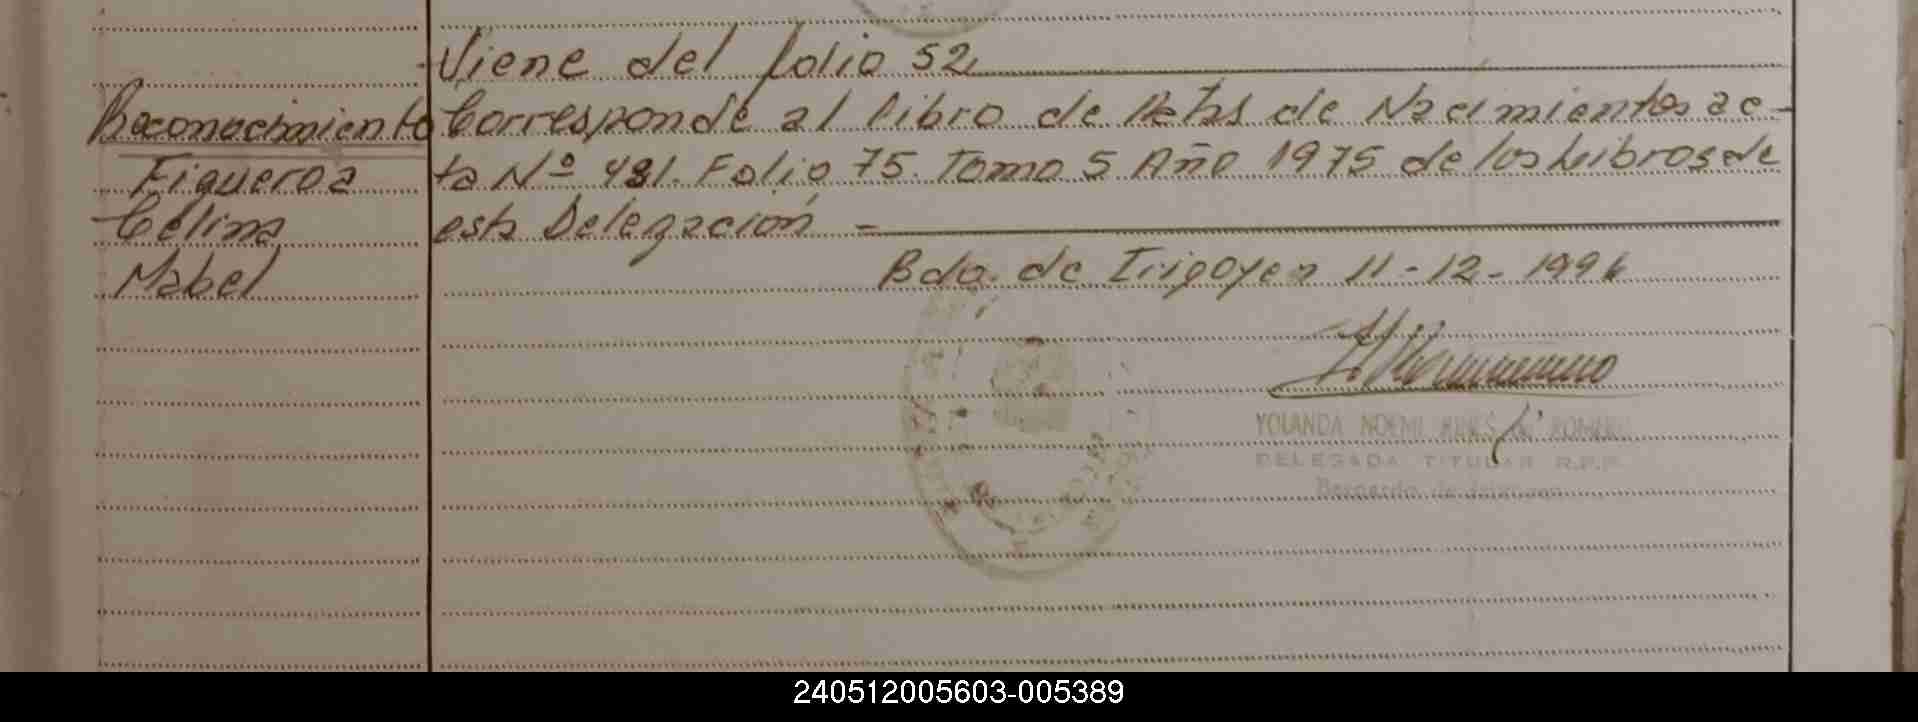 Viene del folio 52
Reconocimiento Corresponde al libro de Actas de Nacimientos ac-
Figueroa ta Nº 481. Folio 75. Tomo 5 Año 1975 de los Libros de
Celina esta Delegación -
Mabel Bdo. de Irigoyen 11-12-1996
YOLANDA NOEMI DE ROMERO
DELEGADA TITULAR R.P.P.
Bernardo de Irigoyen
240512005603-005389